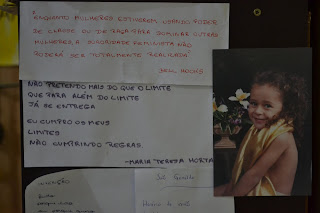 "ENQUANTO MULHERES ESTIVEREM USANDO PODER
DE CLASSE OU DE RAÇA PARA DOMINAR OUTRAS
MULHERES, A SORORIDADE FEMINISTA NÃO
PODERÁ SER TOTALMENTE REALIZADA"
BELL HOOKS
NÃO PRETENDO MAIS DO QUE O LIMITE
QUE PARA ALÉM DO LIMITE
JÁ SE ENTREGA
EU CUMPRO OS MEUS
LIMITES
NÃO CUMPRINDO REGRAS.
-MARIA TERESA HORTA